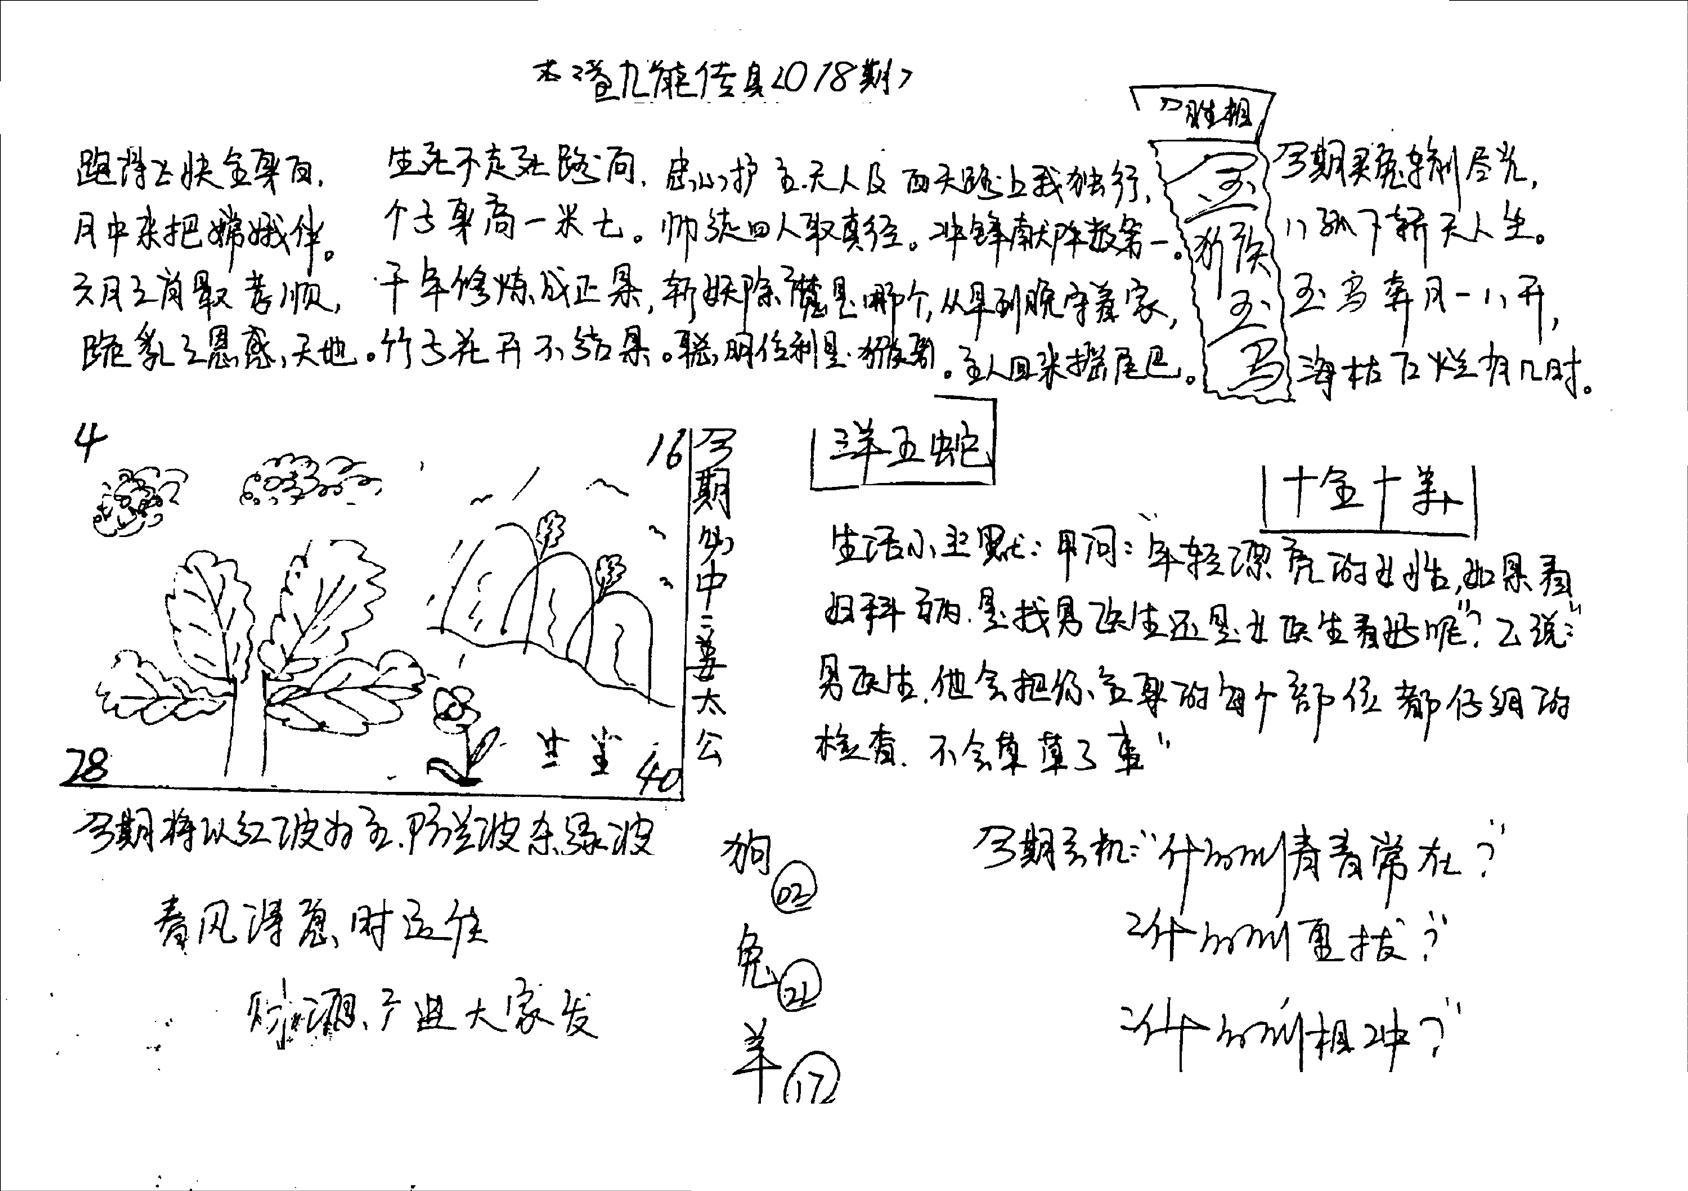 本港九龍传真〈018期〉
六胜相
跑得上快全身白，
月中来把嫦娥伴。
六月三肖最孝顺，
跪乳之恩感天地。
生死不走死路向，
个子身高一米七。
千年修炼成正果，
竹子花开不结果。
忠心护主天人及
师徒四人取真经。
斩妖除魔是哪个，
聪明伶利是猴哥。
西天路上我独行，
冲锋献阵数第一。
从早到晚守着家，
主人回来摇尾巴。
金
猴
玉
马
今期买兔输利尽光，
玉马奔月一八开，
海枯石烂有几时。
4
16
28
40
今期必中三姜太公
羊五蛇
十全十美
生活小幽默：甲问：“年轻漂亮的女性，如果看
妇科病，是找男医生还是女医生看好呢”？乙说：“
男医生，他会把你全身的每个部位都仔细的
检查，不会草草了事”
今期将以红波为主，防兰波杀绿波
春风得意时运佳
财源广进大家发
狗 02
兔 21
羊 17
今期玄机：“什么叫青春常在？”
“什么叫更拔？”
“什么叫相冲？”